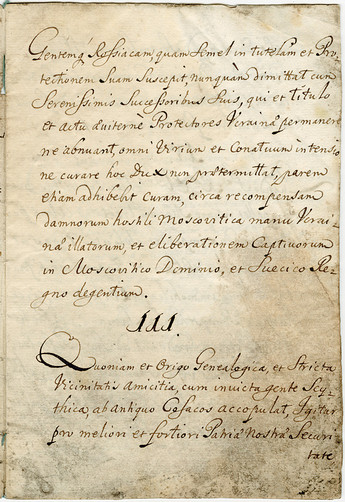 Gentemq́ Rossiacam, quam Simel in tutelam et Pro-
tectionem Suam Suscepit, nunquàm dimittat cum
Serenissimis Successoribus Suis, qui et titulo
et actu æviternè Protectores Ucrainæ permanere
ne abnuant, omni Virium et Conatuum intensio
ne curare hoc Dux non prætermittat, parem
etiam adhibebit Curam, circa recompensam
damnorum hostili Moscovitica manu Ucrai-
næ illatorum, et eliberationem Captivorum
in Moscovitico Dominio, et Suecico Re-
gno degentium.
III.
Quoniam et Origo Genealogica, et Stricta
Vicinitatis Amicitia, cum invicta gente Scy-
thica, ab antiquo Cosacos accopulat, Igitur
pro meliori et fortiori Patriæ Nostræ Securi
tate